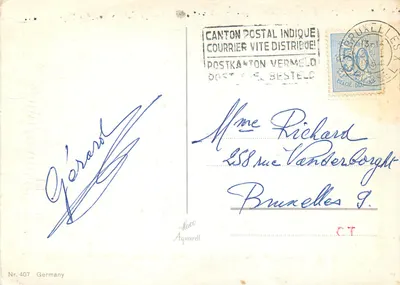 CANTON POSTAL INDIQUE
COURRIER VITE DISTRIBUE!
POSTKANTON VERMELD
POST BESTELD
BRUXELLES X
50
Mme Richard
258 rue Vanderborght
Bruxelles 9.
Gérard
CT
Aquarell
Nr. 407 Germany